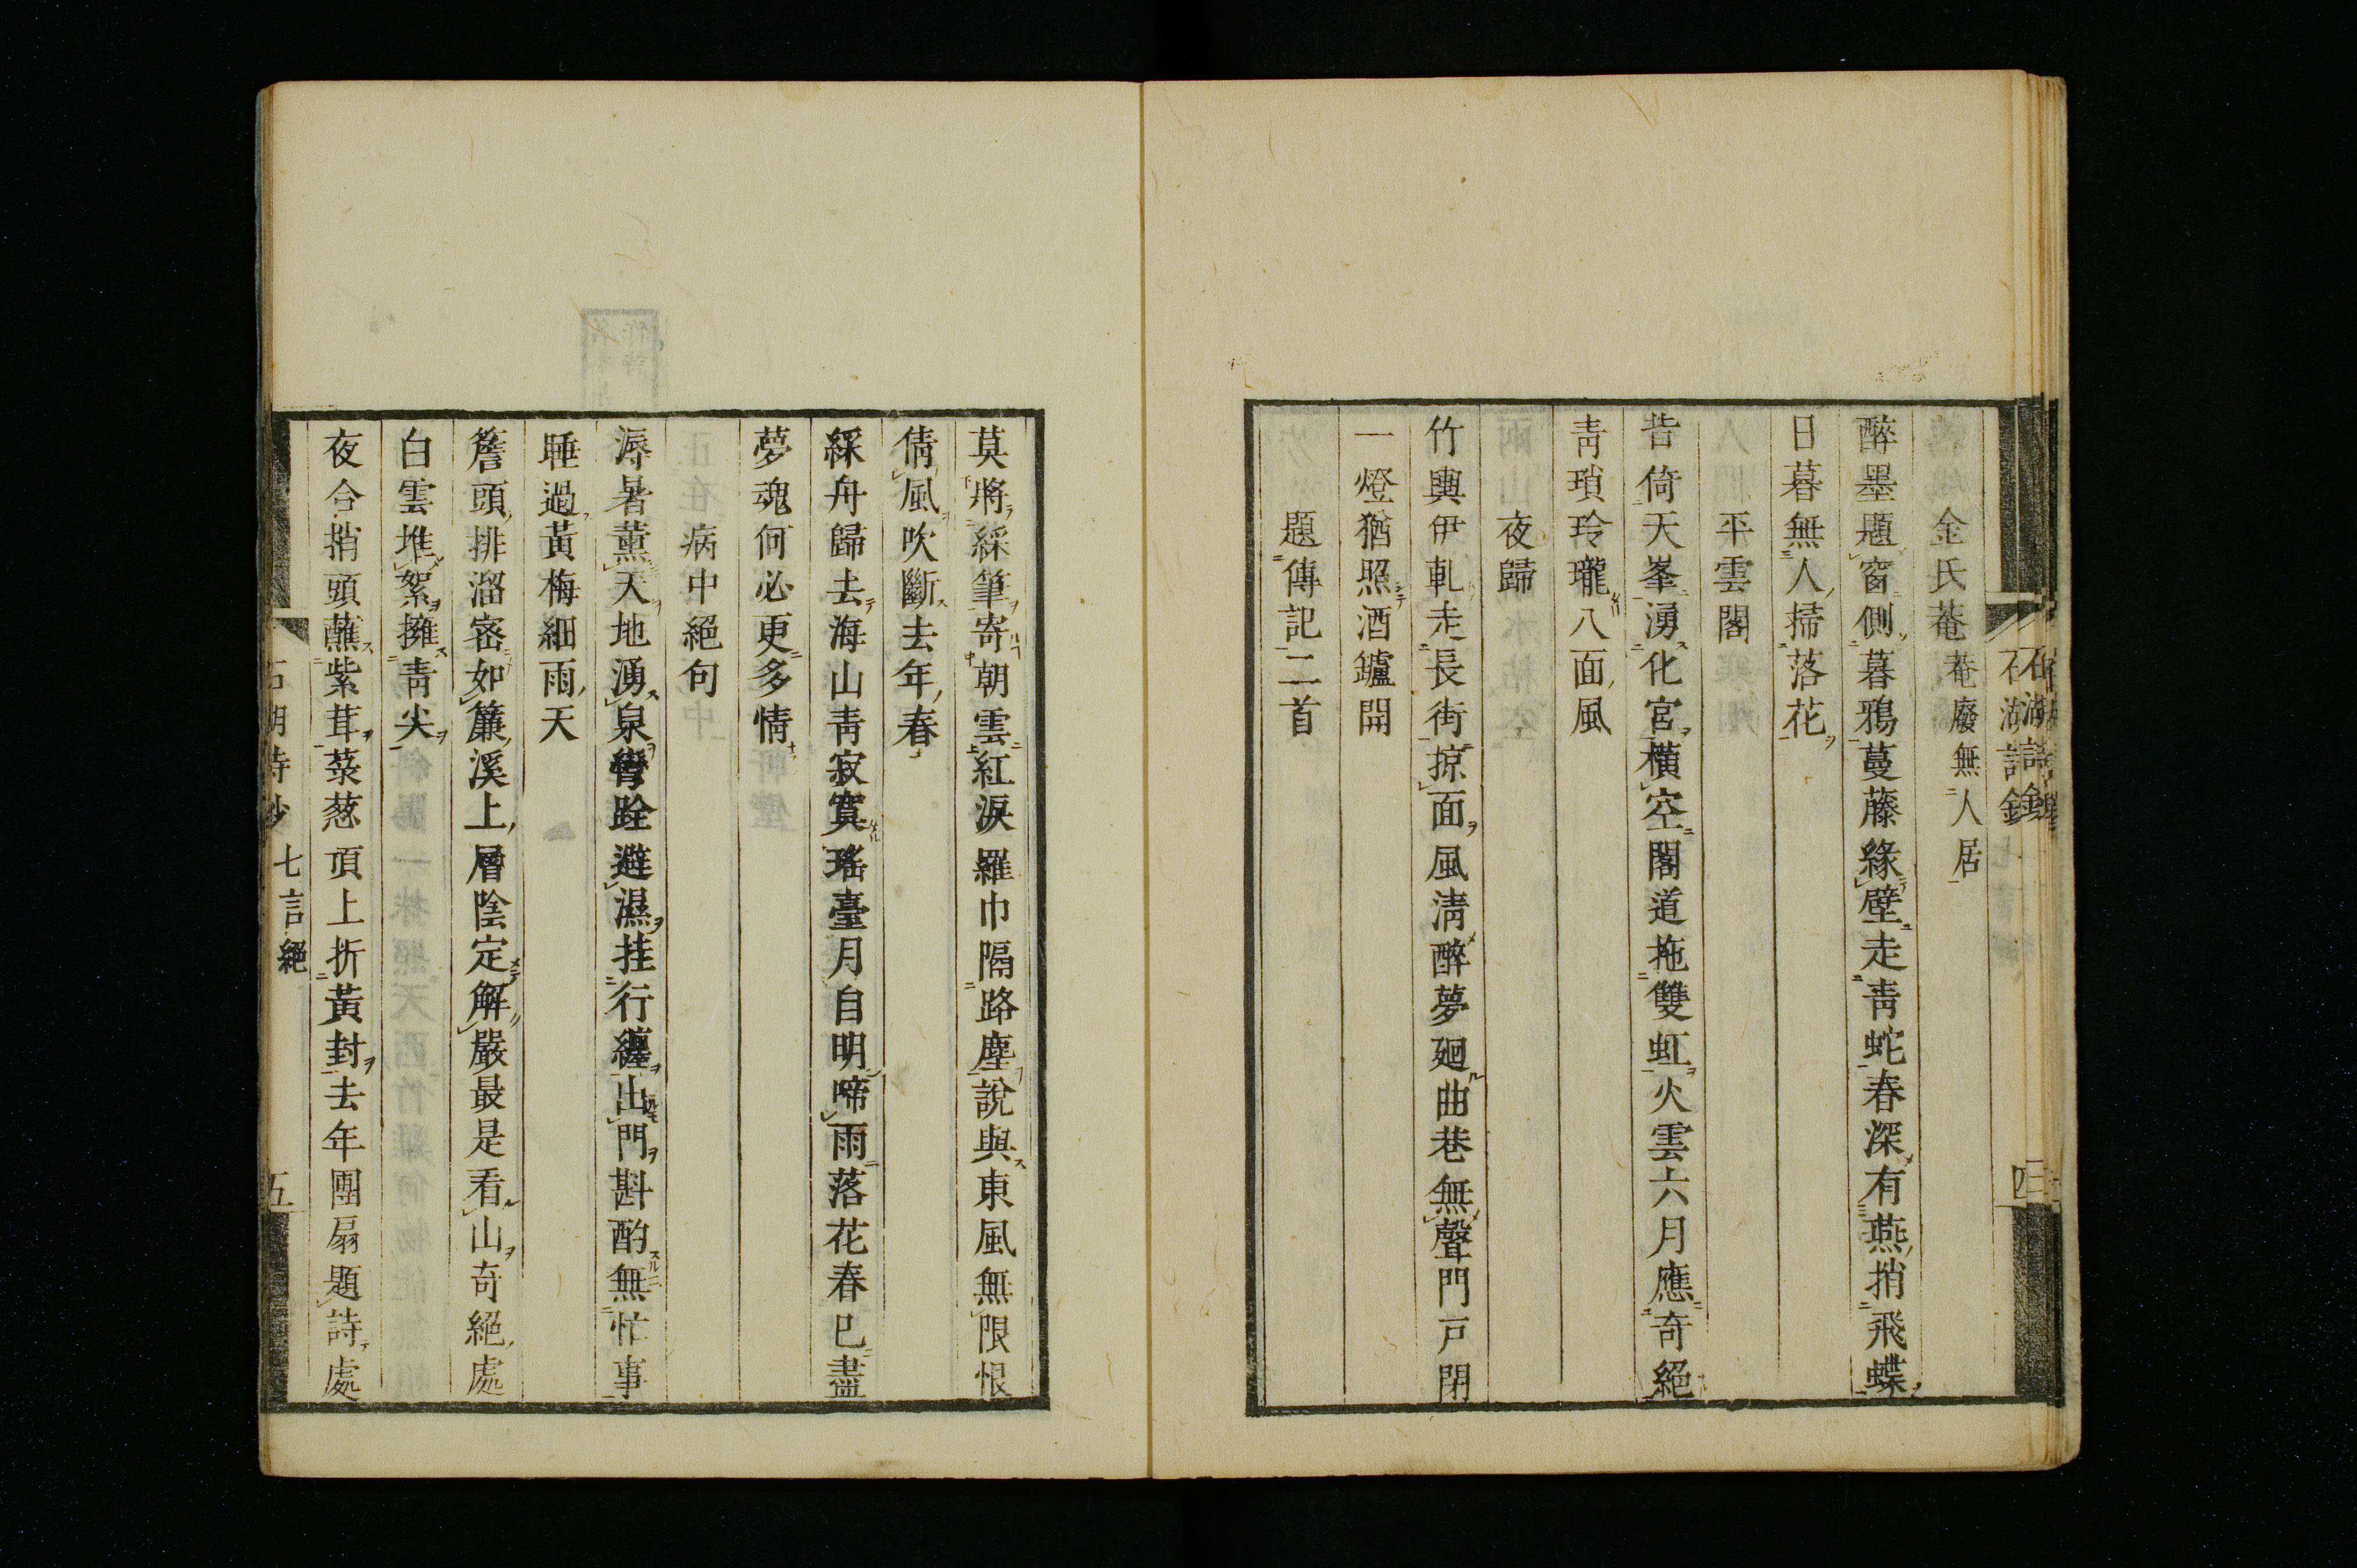 金氏菴菴廢無人居
醉墨題窗側暮鴉蔓藤緣壁走靑蛇春深有燕捎飛蝶
日暮無人掃落花
平雲閣
倚天峯湧化宮橫空閣道拖雙虹火雲六月應奇絕
靑瑣玲瓏八面風
夜歸
竹輿伊軋走長街掠面風淸醉夢廻曲巷無聲門戸閉
一燈猶照酒鑪開
題傳記二首
莫將綵筆寄朝雲紅淚羅巾隔路塵說與東風無限恨
倩風吹斷去年春
綵舟歸去海山靑寂寞瑤臺月自明啼雨落花春已盡
夢魂何必更多情
病中絕句
溽暑薰天地湧泉彎跧避濕挂行纏出門斟酌無忙事
睡過黃梅細雨天
簷頭排溜密如簾溪上層陰定解嚴最是看山奇絕處
白雲堆絮擁靑尖
夜合捎頭蘸紫茸菜葱頂上折黃封去年團扇題詩處
七言絕
五